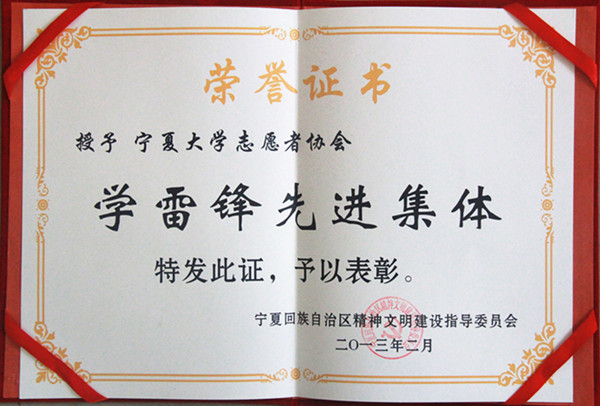 荣誉证书
授予 宁夏大学志愿者协会
学雷锋先进集体
特发此证，予以表彰。
宁夏回族自治区精神文明建设指导委员会
二〇一三年二月